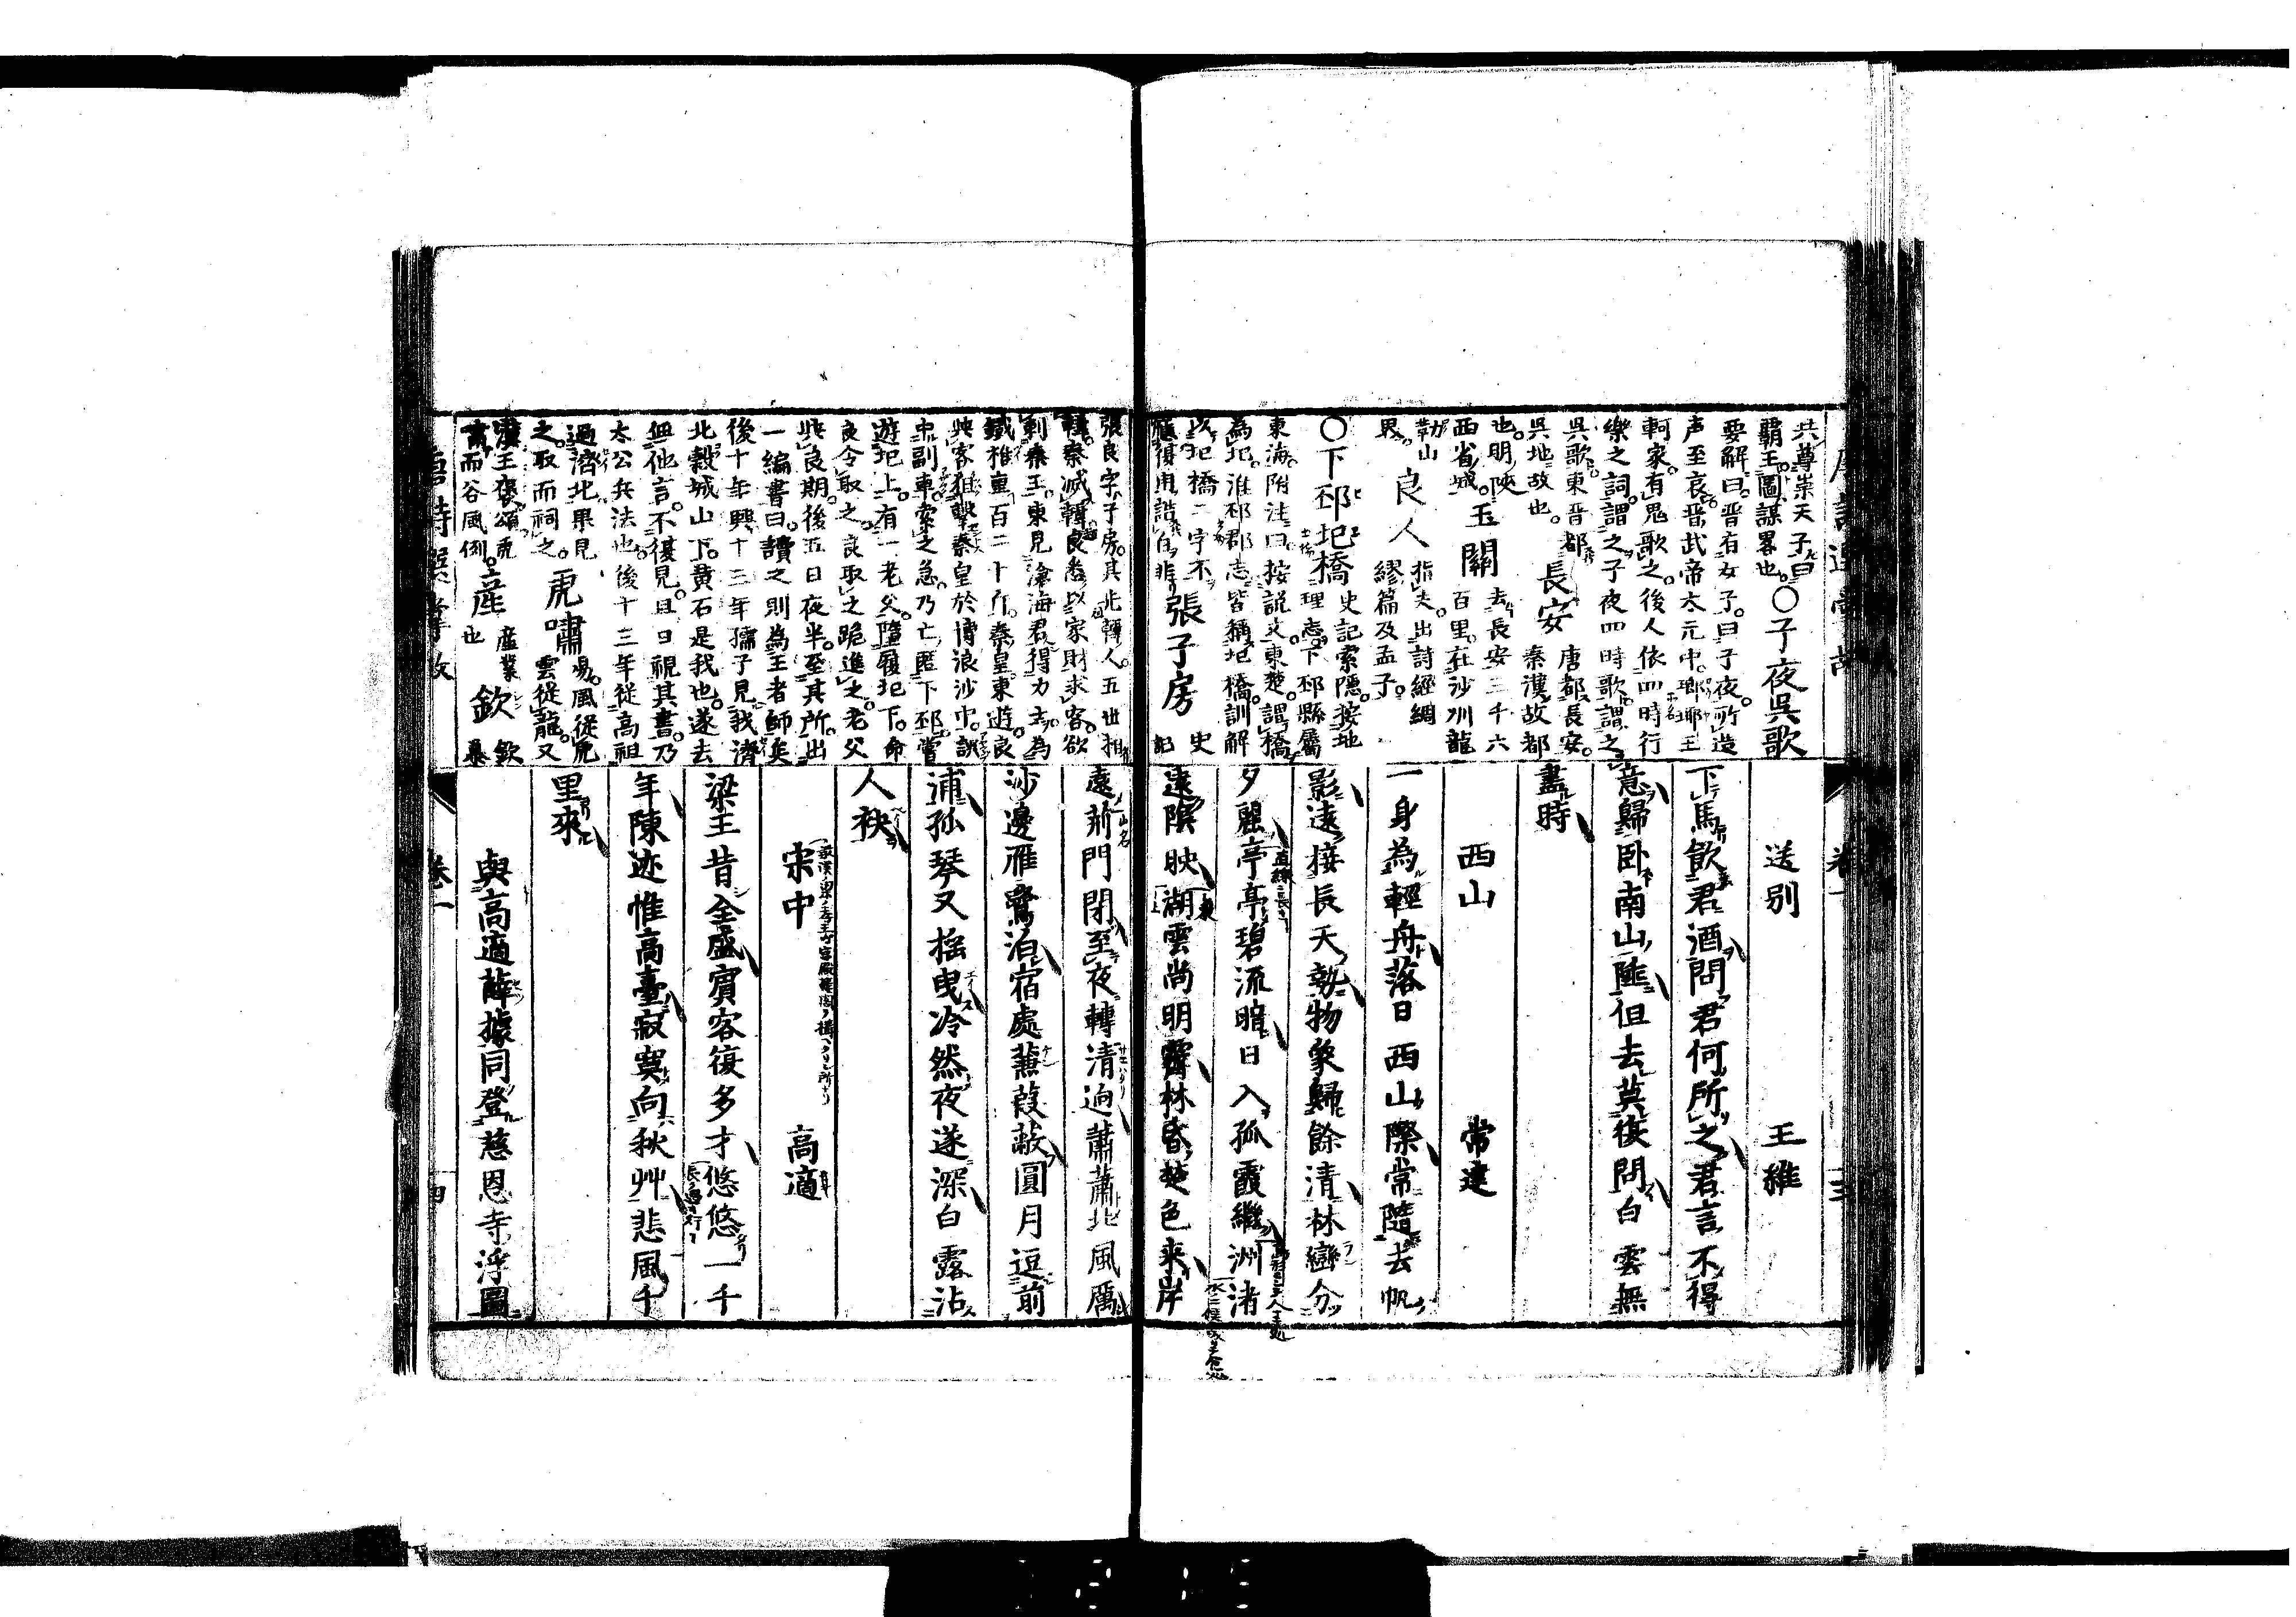 共尊崇天子曰
霸王圖謀畧也○子夜吳歌
要解曰晋有女子曰子夜所造
声至哀晋武帝太元中瑯琊王
軻家有鬼歌之後人依四時行
樂之詞謂之子夜四時歌謂之
吳歌東晋都
吳地故也
長安
唐都長安
秦漢故都
也明陝
西省城
玉關
去長安三千六
百里在沙州龍
勒山
界
良人
指夫出詩經綢
繆篇及孟子
○下邳圯橋
史記索隱按地
理志下邳縣屬
東海附注曰按説文東楚謂橋
為圯淮邳郡志皆稱圯橋訓解
以圯橋二字不
張子房
史
記
送別
王維
下馬飲君酒問君何所之君言不得
意歸卧南山陲但去莫復問白雲無
盡時
西山
常建
一身為輕舟落日西山際常隨去帆
影遠接長天勢物象歸餘清林巒分
夕麗亭亭碧流暗日入孤霞繼洲渚
遠陰映湖雲尚明霽林昏楚色來岸
張良字子房其先韓人五世相
韓秦滅韓良悉以家財求客欲
刺秦王東見滄海君得力士為
鐵椎重百二十斤秦皇東遊良
與客狙擊秦皇於博浪沙中誤
中副車索之急乃亡匿下邳嘗
遊圯上有一老父墮履圯下命
良令取之良取之跪進之老父
與良期後五日夜半至其所出
一編書曰讀之則為王者師矣
後十年興十三年孺子見我濟
北穀城山下黄石是我也遂去
無他言不復見旦日視其書乃
太公兵法也後十三年從高祖
過濟北果見
之取而祠之
虎嘯
易風從虎
雲從龍又
漢王褒頌虎
嘯而谷風冽
産
産業
也
欽
欽
慕
遠荊門閉至夜轉清迥蕭蕭北風厲
沙邊雁鷺泊宿處蒹葭蔽圓月逗前
浦孤琴又搖曳冷然夜遂深白露沾
人袂
宋中
高適
梁王昔全盛賓客復多才悠悠一千
年陳迹惟高臺寂寞向秋艸悲風千
里來
與高適薛據同登慈恩寺浮圖
卷一